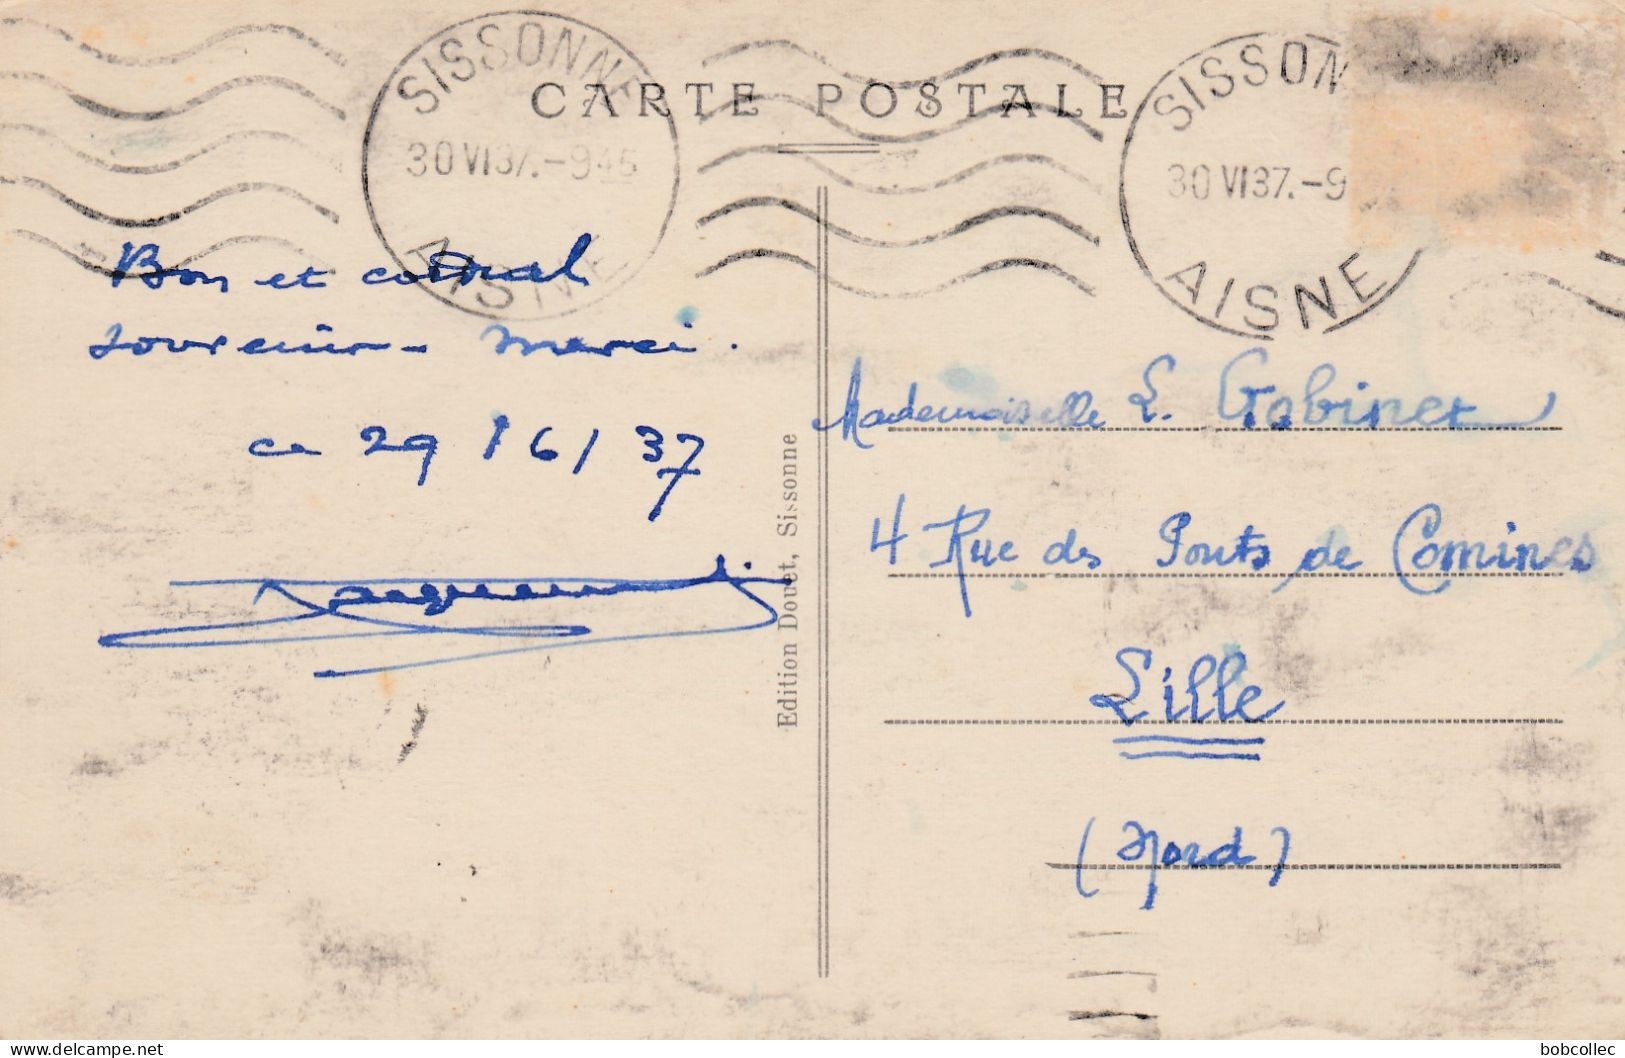 SISSONNE
30 VI 37.-9 45
AISNE
CARTE POSTALE
SISSON
30 VI 37.-9
AISNE
Bon et cordial
souvenir - merci.
ce 29/6/37
Edition Douet, Sissonne
Mademoiselle L. Gobinet
4 Rue des Ponts de Comines
Lille
(Nord)
bobcollec